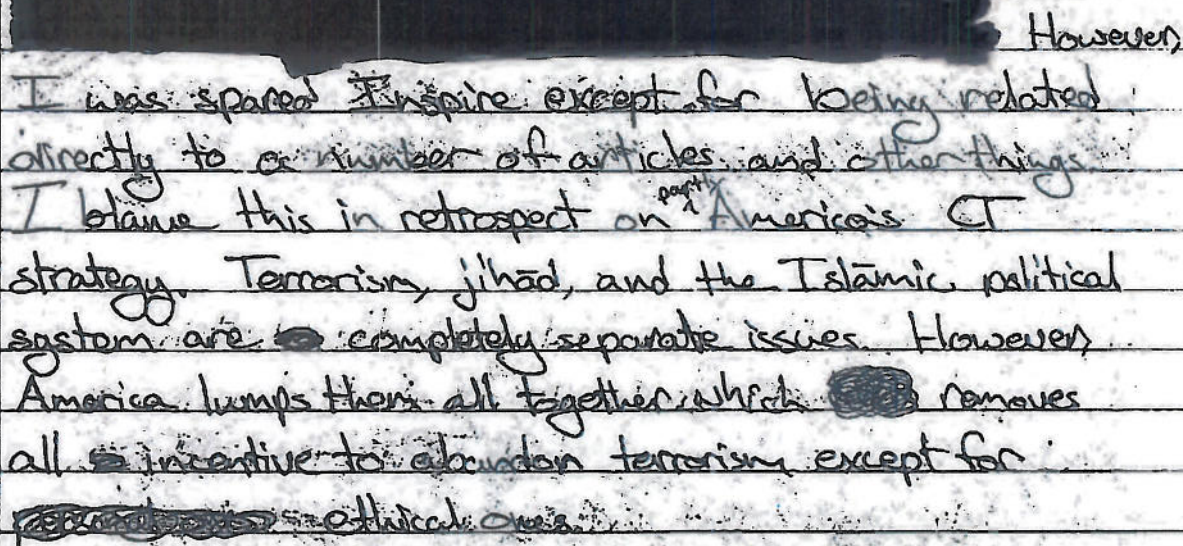 However,
I was spared Inspire except for being related
directly to a number of articles and other things
I blame this in retrospect on partly America's CT
strategy. Terrorism, jihād, and the Islāmic political
system are completely separate issues. However,
America lumps them all together which removes
all incentive to abandon terrorism except for
ethical ones.